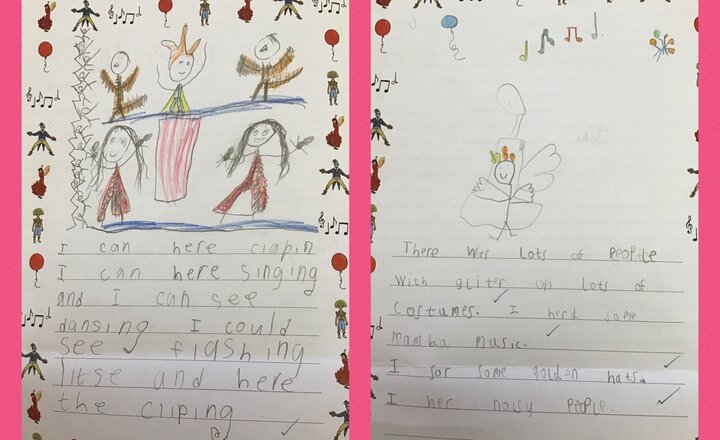 I can here clapin
I can here singing
and I can see
dansing. I could
see flashing
litse and here
the cliping
There was Lots of People
with gliter on Lots of
Costumes. I herd some
mamba music.
I sor some golden hats.
I her noisy People.